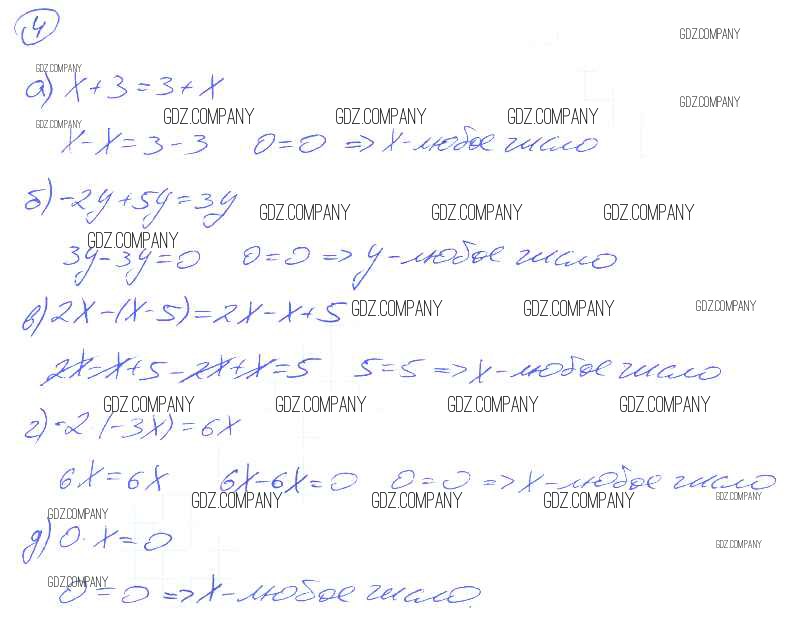 4
GDZ.COMPANY
GDZ.COMPANY
а) x + 3 = 3 + x
GDZ.COMPANY
GDZ.COMPANY GDZ.COMPANY GDZ.COMPANY
GDZ.COMPANY
x - x = 3 - 3 0 = 0 => x - любое число
б) -2y + 5y = 3y
GDZ.COMPANY GDZ.COMPANY GDZ.COMPANY
GDZ.COMPANY
3y - 3y = 0 0 = 0 => y - любое число
в) 2x - (x - 5) = 2x - x + 5
GDZ.COMPANY GDZ.COMPANY GDZ.COMPANY
2x - x + 5 - 2x + x = 5 5 = 5 => x - любое число
GDZ.COMPANY GDZ.COMPANY GDZ.COMPANY GDZ.COMPANY
г) -2 · (-3x) = 6x
6x = 6x 6x - 6x = 0 0 = 0 => x - любое число
GDZ.COMPANY GDZ.COMPANY GDZ.COMPANY GDZ.COMPANY
GDZ.COMPANY
д) 0 · x = 0
GDZ.COMPANY
GDZ.COMPANY
0 = 0 => x - любое число.